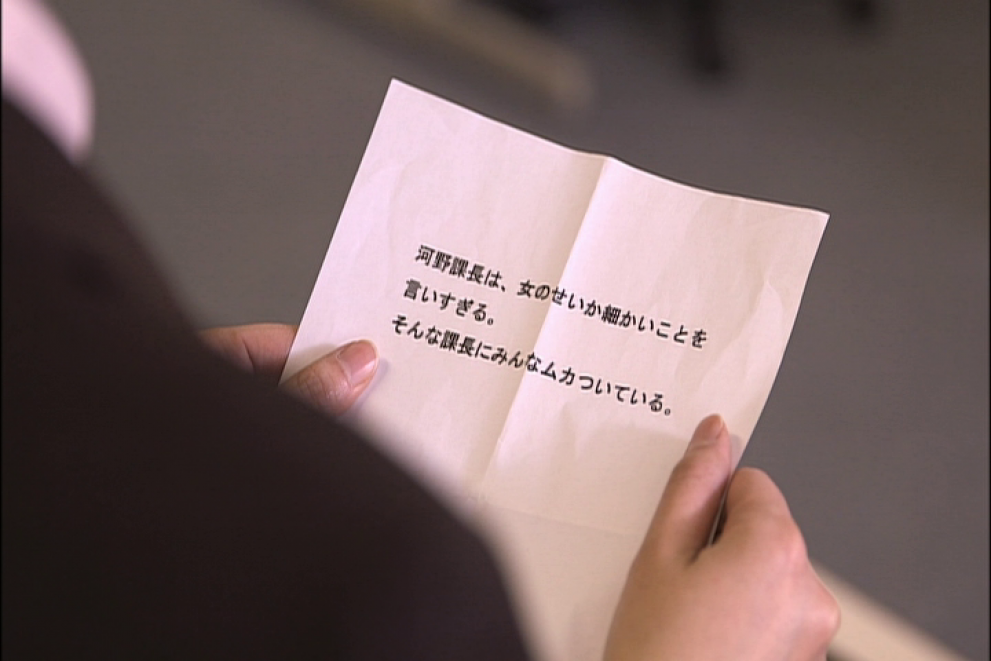 河野課長は、女のせいか細かいことを
言いすぎる。
そんな課長にみんなムカついている。